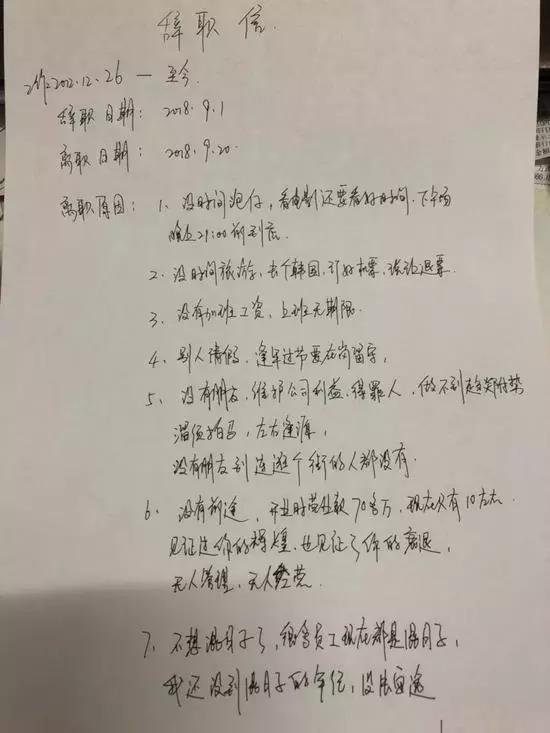 辞职信.
工作:2012.12.26 — 至今.
辞职日期: 2018.9.1
离职日期: 2018.9.20.
离职原因: 1、没时间泡仔,看电影还要看好时间.下午场
晚上21:00前到底.
2、没时间旅游,去个韩国,订好机票,强迫退票.
3、没有加班工资,上班无期限.
4、别人请假,逢年过节要在岗留守,
5、没有朋友,维护公司利益,得罪人,做不到趋炎附势
溜须拍马,左右逢源,
没有朋友到连逛个街的人都没有.
6、没有前途,开业时营业款70多万,现在只有10左右.
见证过你的辉煌,也见证了你的衰退,
无人管理,无人经营.
7、不想混日子了,很多员工现在都是混日子,
我还没到混日子的年纪,没法